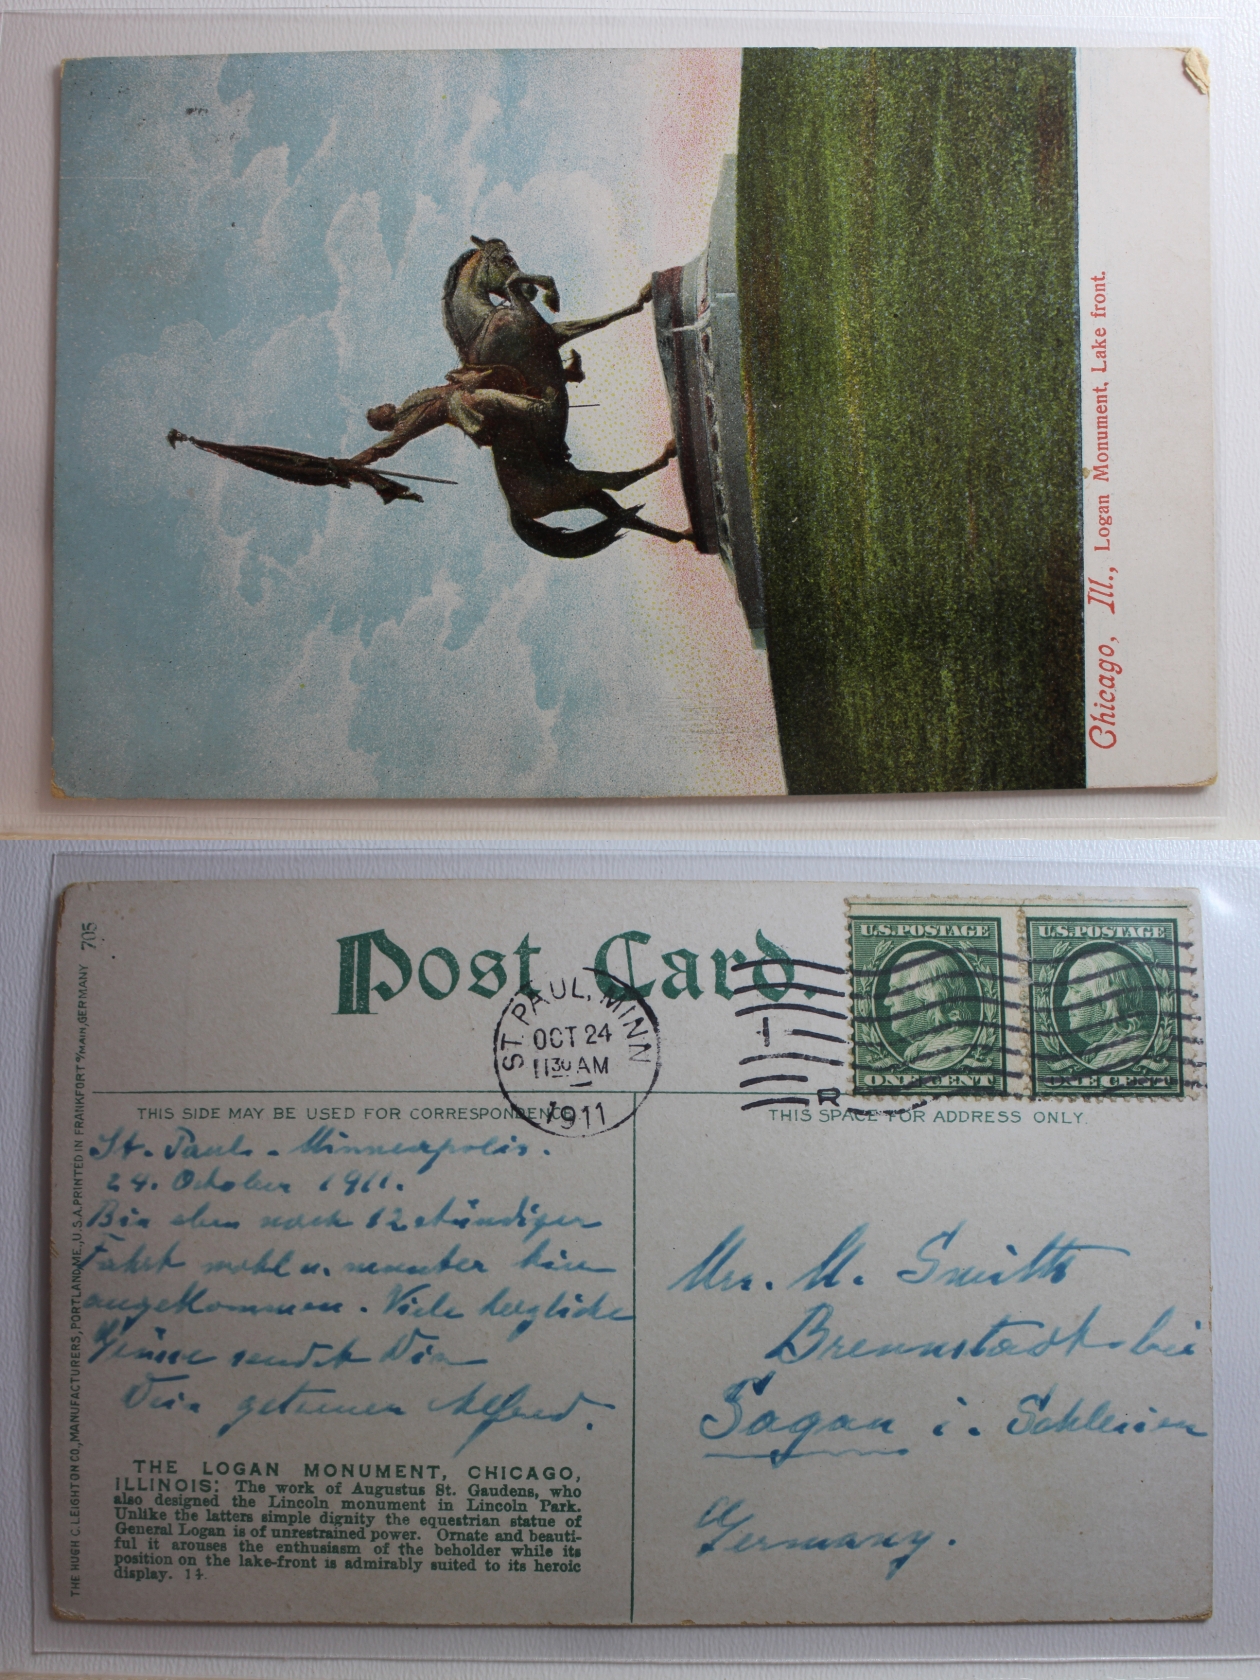 Chicago, Ill., Logan Monument, Lake front.
THE HUGH C. LEIGHTON CO., MANUFACTURERS, PORTLAND, ME., U.S.A. PRINTED IN FRANKFORT o/MAIN, GERMANY 705
Post Card.
U.S. POSTAGE
ONE CENT
U.S. POSTAGE
ONE CENT
ST. PAUL, MINN
OCT 24
11 30 AM
1911
R
THIS SIDE MAY BE USED FOR CORRESPONDENCE
THIS SPACE FOR ADDRESS ONLY.
St. Paul - Minneapolis.
24. October 1911.
Bin eben nach 12 stündiger
Fahrt wohl u. munter hier
angekommen. Viele herzliche
Grüsse sendet Dir
Dein getreuer Alfred.
Mrs. M. Smith
Brennstadt bei
Sagan i. Schlesien
Germany.
THE LOGAN MONUMENT, CHICAGO,
ILLINOIS: The work of Augustus St. Gaudens, who
also designed the Lincoln monument in Lincoln Park.
Unlike the latters simple dignity the equestrian statue of
General Logan is of unrestrained power. Ornate and beauti-
ful it arouses the enthusiasm of the beholder while its
position on the lake-front is admirably suited to its heroic
display. 14.